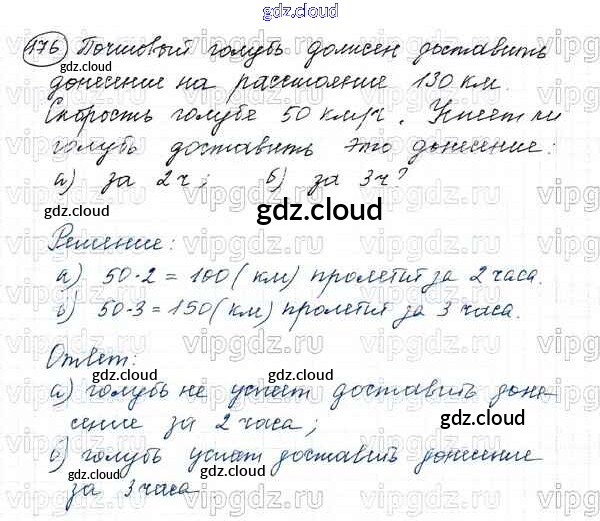 gdz.cloud
176 Почтовый голубь должен доставить
донесение на расстояние 130 км.
Скорость голубя 50 км/ч. Успеет ли
голубь доставить это донесение:
а) за 2ч; б) за 3ч?
gdz.cloud
Решение:
а) 50·2 = 100 (км) пролетит за 2 часа.
б) 50·3 = 150 (км) пролетит за 3 часа.
Ответ:
а) голубь не успеет доставить доне-
сение за 2 часа;
б) голубь успеет доставить донесение
за 3 часа